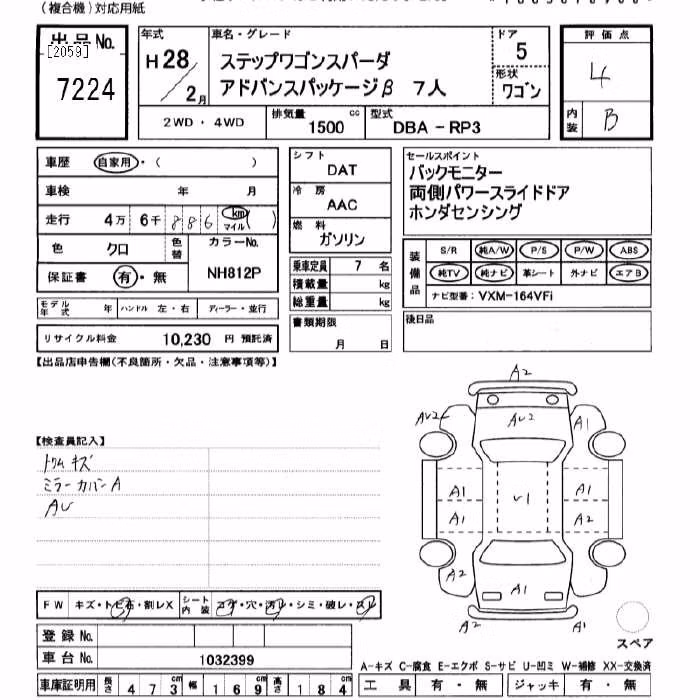 (複合機)対応用紙
出品No.
[2059]
7224
年式
H28/2月
車名・グレード
ステップワゴンスパーダ
アドバンスパッケージβ 7人
ドア
5
形状
ワゴン
2WD ・ 4WD
排気量
1500 cc
型式
DBA - RP3
評価点
4
内装
B
車歴 自家用・( )
車検 年 月
走行 4万 6千 886 km マイル ( )
色 クロ
色替
カラーNo.
NH812P
保証書 有・無
モデル年式 年 ハンドル 左・右 ディーラー・並行
リサイクル料金 10,230 円 預託済
シフト
DAT
冷房
AAC
燃料
ガソリン
乗車定員 7 名
積載量 kg
総重量 kg
書類期限
月 日
セールスポイント
バックモニター
両側パワースライドドア
ホンダセンシング
装備品
S/R 純A/W P/S P/W ABS
純TV 純ナビ 革シート 外ナビ エアB
ナビ型番: VXM-164VFi
後日品
【出品店申告欄(不良箇所・欠品・注意事項等)】
【検査員記入】
トリムキズ
ミラーカバーA
AU
A2
AU2
AU2
A1
A1
A1
U1
A1
A2
A2
A1
A2
A1
スペア
FW キズ・トビ石・割レX
シート内装 コゲ・穴・汚レ・シミ・破レ・スレ
登録No.
車台No. 1032399
車庫証明用 長さ 473cm 幅 169cm 高さ 184cm
A-キズ C-腐食 E-エクボ S-サビ U-凹ミ W-補修 XX-交換済
工具 有・無 ジャッキ 有・無